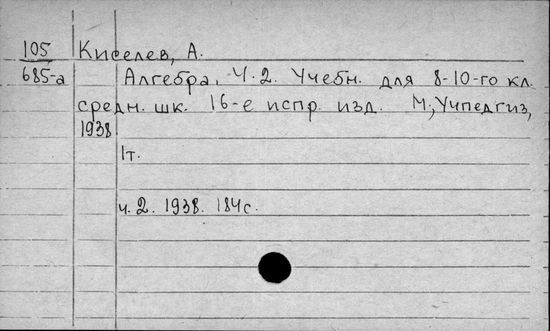 105 Киселев, А.
685-а Алгебра, Ч.2. Учебн. для 8-10-го кл.
средн. шк. 16-е испр. изд. М., Учпедгиз,
1938
1т.
ч.2. 1938. 184с.